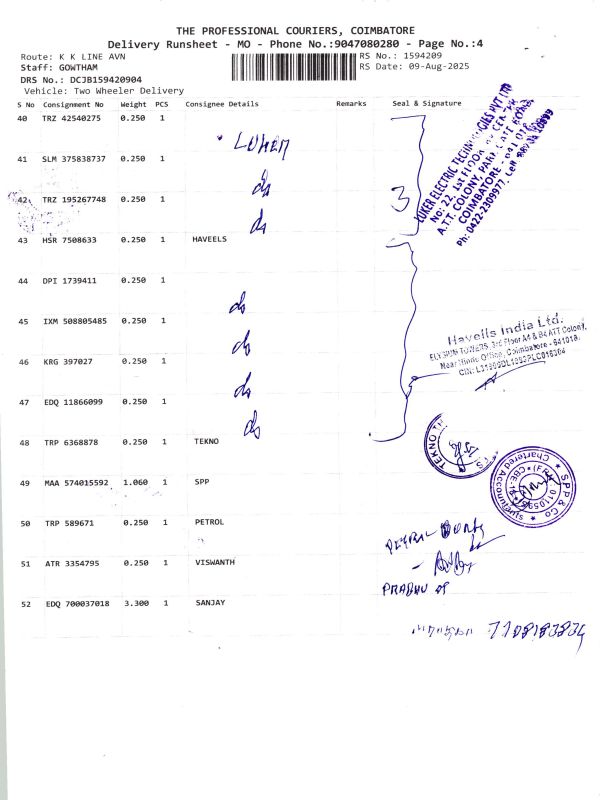 THE PROFESSIONAL COURIERS, COIMBATORE
Delivery Runsheet - MO - Phone No.:9047080280 - Page No.:4
Route: K K LINE AVN
RS No.: 1594209
Staff: GOWTHAM
RS Date: 09-Aug-2025
DRS No.: DCJB159420904
Vehicle: Two Wheeler Delivery
S No Consignment No Weight PCS Consignee Details Remarks Seal & Signature
40 TRZ 42540275 0.250 1
LUKER
41 SLM 375838737 0.250 1
do
42 TRZ 195267748 0.250 1
3
do
LUKER ELECTRIC TECHNOLOGIES PVT LTD
No: 22, 1st FLOOR
A.T.T. COLONY,
COIMBATORE
Ph: 0422-2309977,
43 HSR 7508633 0.250 1 HAVEELS
44 DPI 1739411 0.250 1
do
45 IXM 508805485 0.250 1
do
Havells India Ltd.
ELYSIUM TOWERS, 3rd Floor A4 & B4 ATT Colony,
Near Hindu Office, Coimbatore - 641018.
46 KRG 397027 0.250 1
do
47 EDQ 11866099 0.250 1
do
48 TRP 6368878 0.250 1 TEKNO
TEKNO
49 MAA 574015592 1.060 1 SPP
SPP & Co
Chartered Accountants
50 TRP 589671 0.250 1 PETROL
51 ATR 3354795 0.250 1 VISWANTH
PRABHU
52 EDQ 700037018 3.300 1 SANJAY